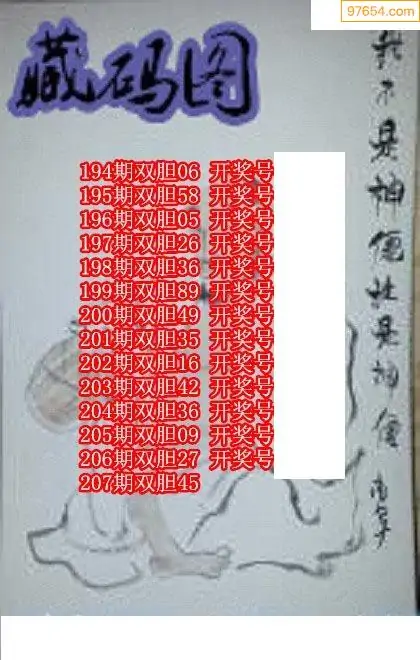 97654.com
藏码图
194期双胆06 开奖号
195期双胆58 开奖号
196期双胆05 开奖号
197期双胆26 开奖号
198期双胆36 开奖号
199期双胆89 开奖号
200期双胆49 开奖号
201期双胆35 开奖号
202期双胆16 开奖号
203期双胆42 开奖号
204期双胆36 开奖号
205期双胆09 开奖号
206期双胆27 开奖号
207期双胆45
不是神仙
是神仙